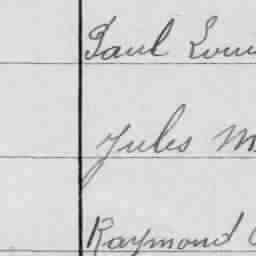 Paul Loui
Jules M
Raymond